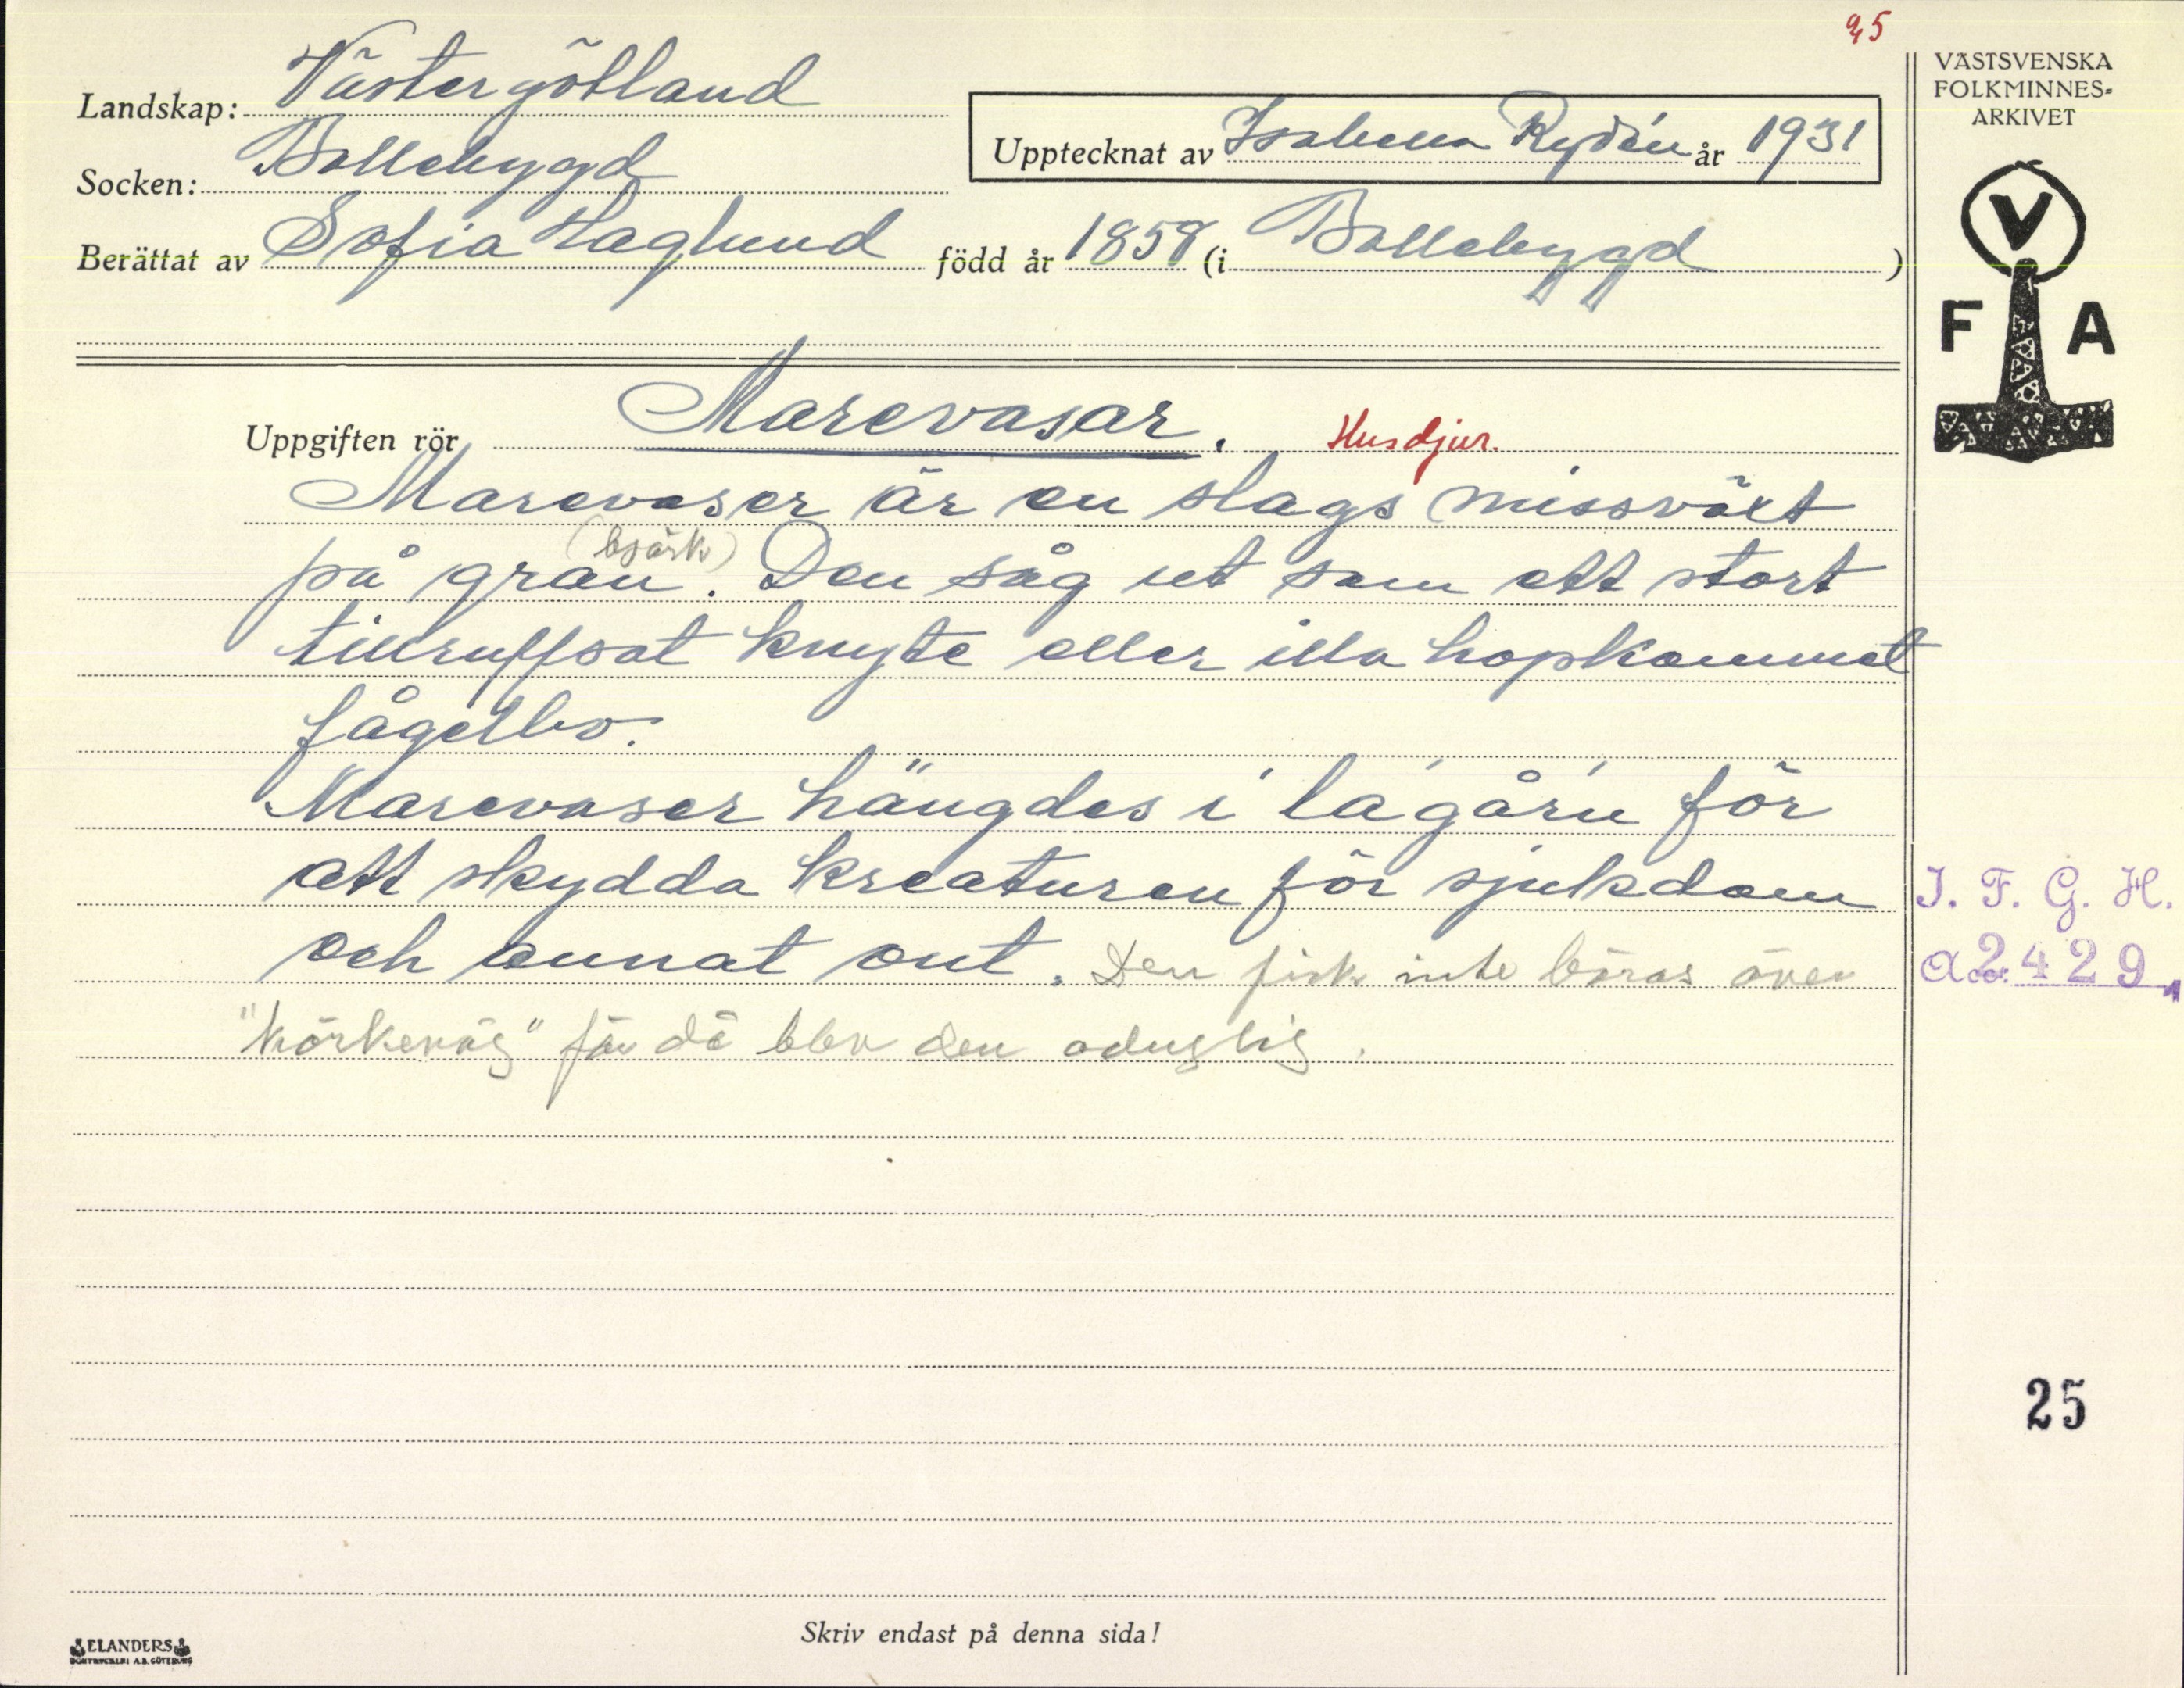 25
Landskap: Västergötland
Socken: Bollebygd
Upptecknat av Isabella Rydén år 1931
Berättat av Sofia Haglund född år 1858 (i Bollebygd)
VÄSTSVENSKA
FOLKMINNES-
ARKIVET
V
F A
Uppgiften rör Marevasar. Husdjur.
Marevaser är en slags missväxt
(björk)
på gran. Den såg ut som ett stort
tillruffsat knyte eller illa hopkommet
fågelbo.
Marevaser hängdes i la'går'n för
att skydda kreaturen för sjukdom
och annat ont. Den fick inte bäras över
"körkeväg" för då blev den oduglig.
I. F. G. H.
Acc. 2429
25
Skriv endast på denna sida!
ELANDERS
BOKTRYCKERI A.B. GÖTEBORG